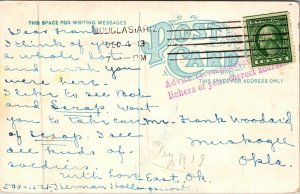 THIS SPACE FOR WRITING MESSAGES
POST CARD
DOUGLAS, ARIZ.
DEC 4 13
PM
Advise
lishers of your correct address
THIS SPACE FOR ADDRESS ONLY
Dear Frank
I think of you
a whole lot
and wish you
were here.
I like to see Bob
and Scrap. Want
you to take care
of Scrap. I see
all kinds of
soldiers.
With love
Mr. Frank Woodard
Muskogee
Okla.
East, Ok.